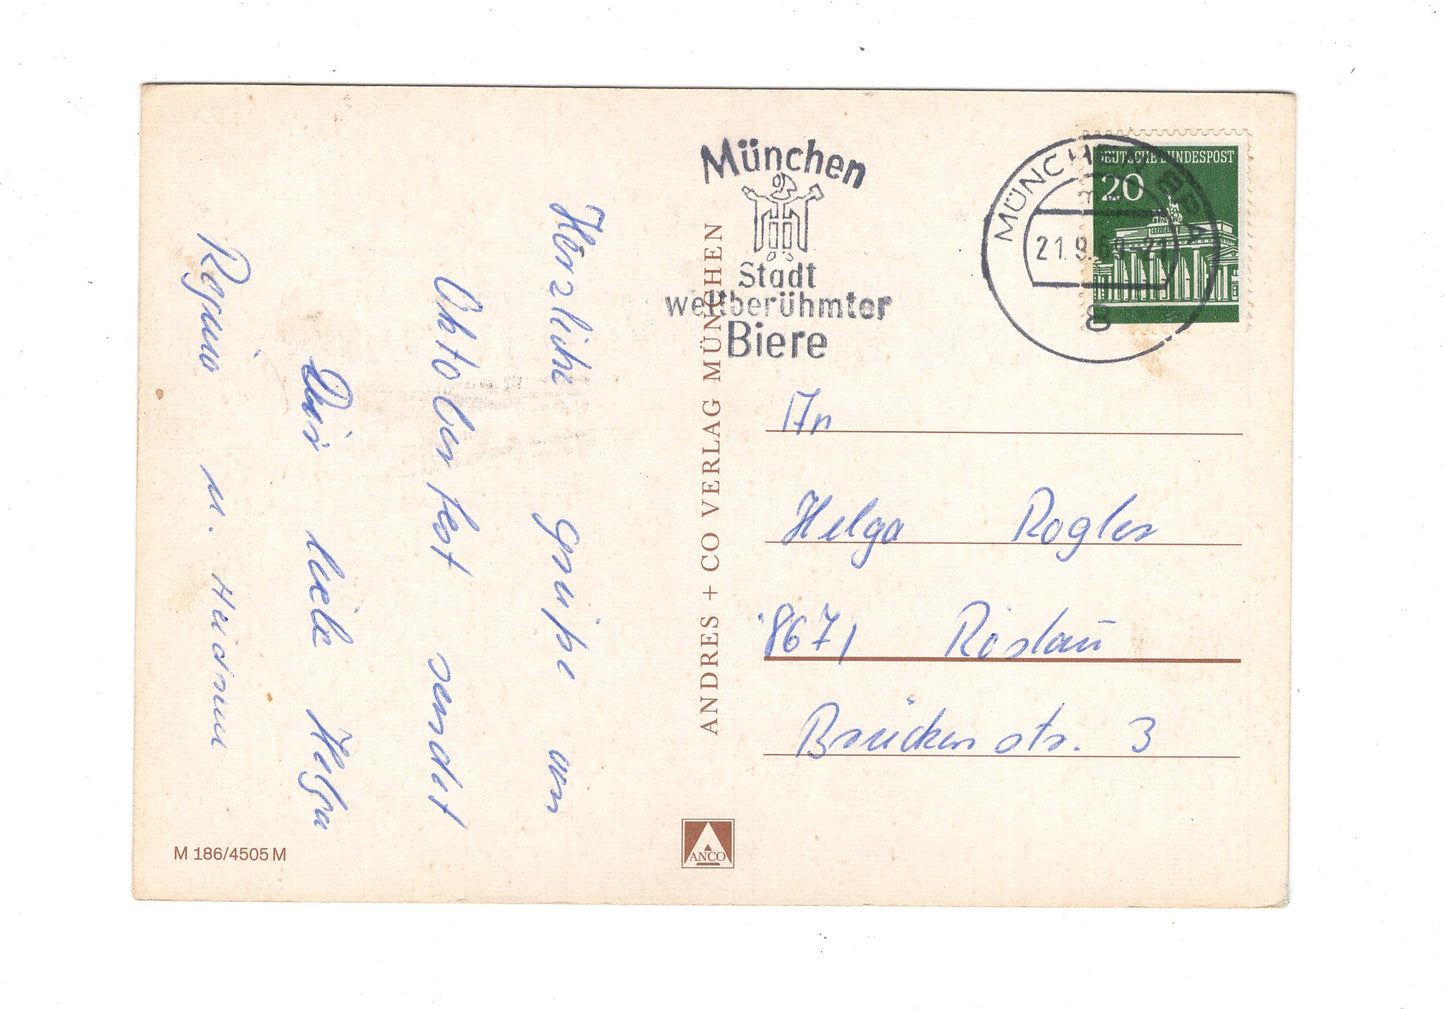 München
Stadt
weltberühmter
Biere
MÜNCHEN BPA
21.9.69-21
8
DEUTSCHE BUNDESPOST
20
Herzliche Grüße vom
Oktoberfest sendet
Dir liebe Helga
Regina u.
ANDRES + CO VERLAG MÜNCHEN
An
Helga Rogler
8671 Röslau
Brückenstr. 3
M 186/4505 M
ANCO